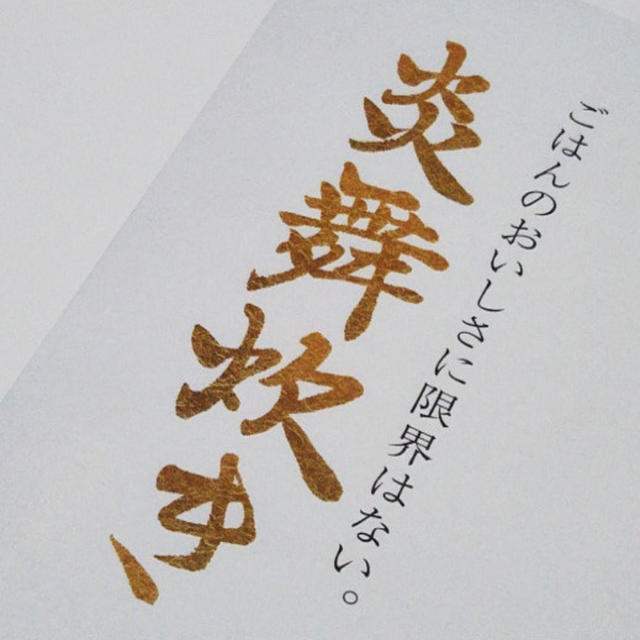 ごはんのおいしさに限界はない。
炎舞炊き